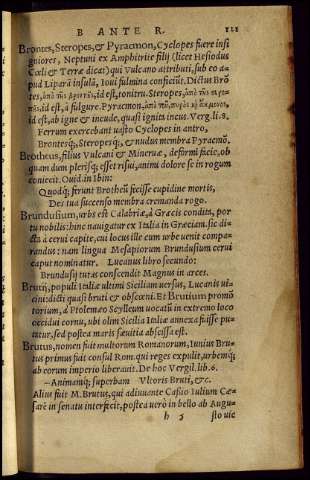 B ANTE R. 121
Brontes, Steropes, & Pyracmon, Cyclopes fuere insi
gniores, Neptuni ex Amphitrite filij (licet Hesiodus
Cœli & Terræ dicat) qui Vulcano attributi, sub eo a-
pud Liparā insulā, Ioui fulmina conficiūt. Dictus Brō
tes, ἀπὸ τῆς βροντῆς, id est, tonitru. Steropes, ἀπὸ τῆς στερο-
id est, à fulgure. Pyracmon, ἀπὸ τοῦ πυρὸς
id est, ab igne & incude, quasi ignitus incus. Verg. li. 8.
Ferrum exercebant uasto Cyclopes in antro,
Brontesq;, Steropesq;, & nudus membra Pyracmō.
Brotheus, filius Vulcani & Mineruæ, deformi facie, ob
quam dum plerisq; esset risui, animi dolore se in rogum
coniecit. Ouid. in Ibin:
Quodq; ferunt Brotheū fecisse cupidine mortis,
Des tua succenso membra cremanda rogo.
Brundusium, urbs est Calabriæ, à Græcis condita, por
tu nobilis: hinc nauigatur ex Italia in Græciam. sic di-
cta à cerui capite, cui locus ille cum urbe uenit compa-
randus: nam lingua Mesapiorum Brundusium cerui
caput nominatur. Lucanus libro secundo:
Brundusij tutas conscendit Magnus in arces.
Bruti, populi Italiæ ultimi Siciliam uersus, Lucanis ui-
cini: dicti quasi bruti & obscœni. Et Brutium promō
torium, à Ptolemæo Scylleum uocatū in extremo loco
occidui cornu, ubi olim Sicilia Italiæ annexa fuisse pu-
tatur, sed postea maris sæuitia abscissa est.
Brutus, nomen fuit multorum Romanorum, Iunius Bru-
tus primus fuit consul Rom. qui reges expulit, urbemq;
ab eorum imperio liberauit. De hoc Vergil. lib. 6.
—Animamq; superbam Vltoris Bruti, &c.
Alius fuit M. Brutus, qui adiuuante Cassio Iulium Cæ-
sarē in senatu interfecit, postea uerò in bello ab Augu-
h 5 sto uic